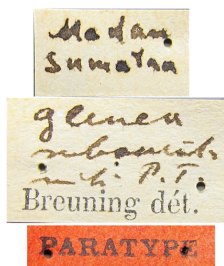 Medan
Sumatra
Glenea
mihi P.T.
Breuning dét.
PARATYPE